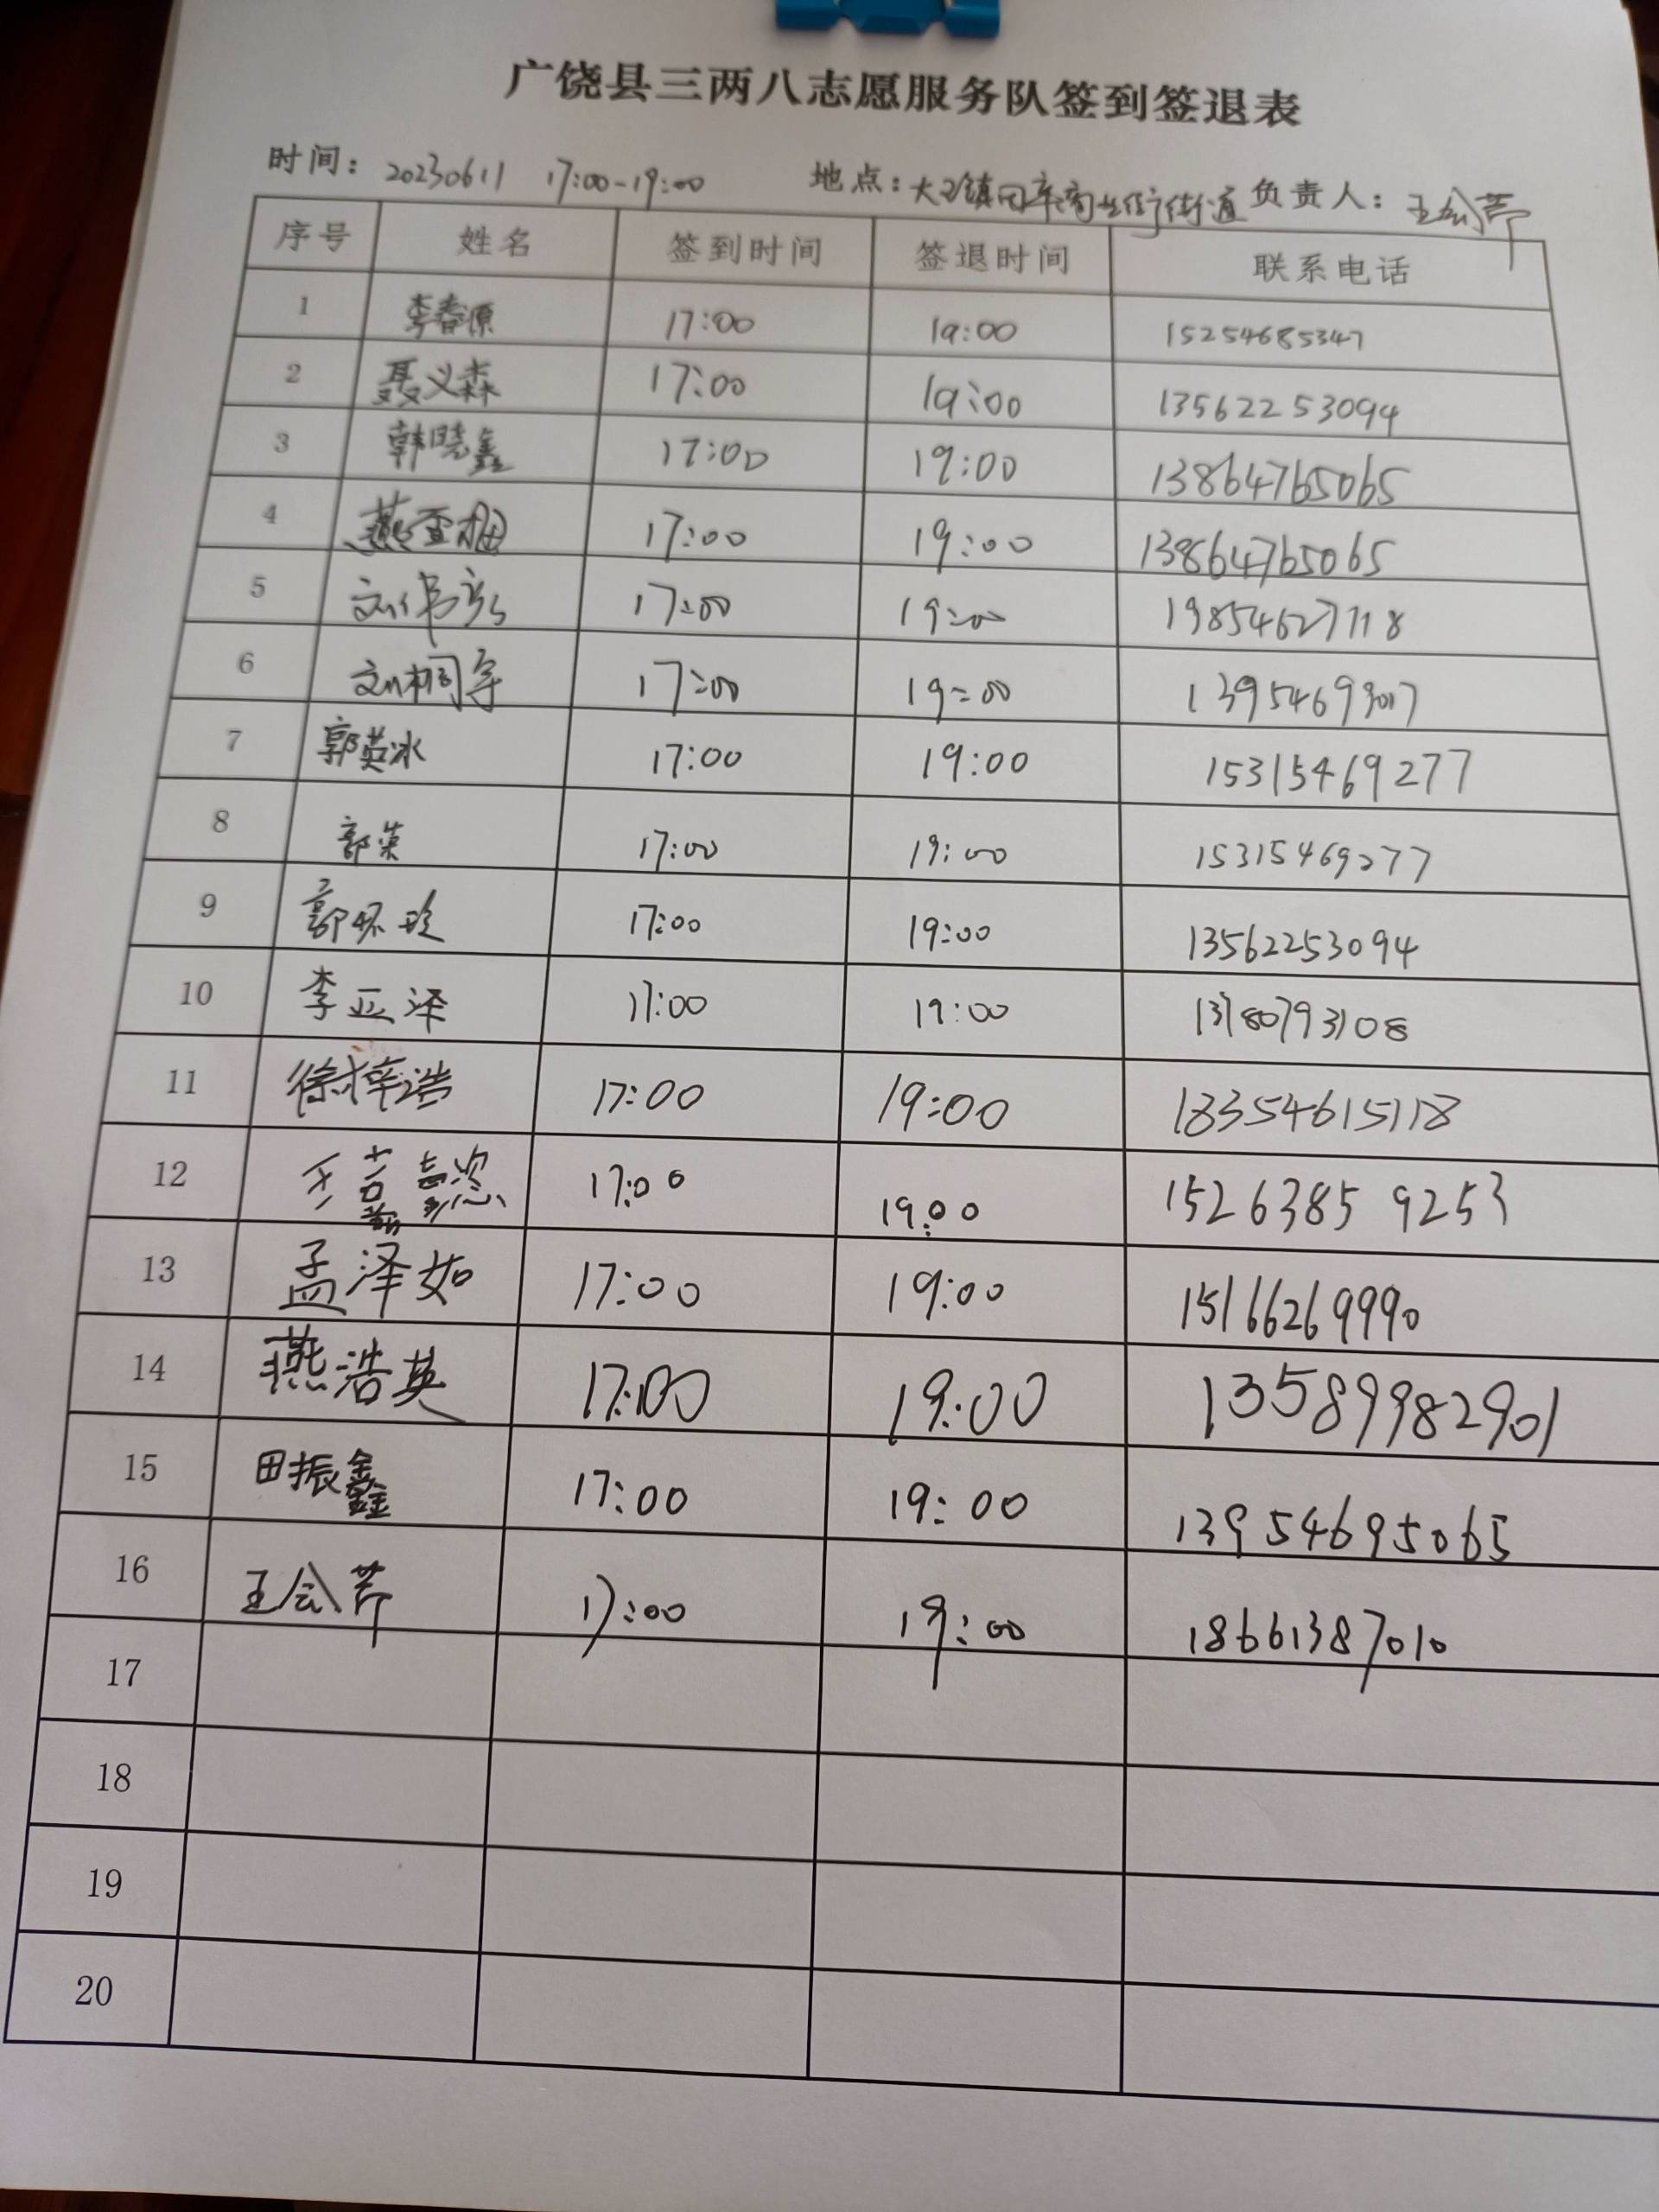 广饶县三两八志愿服务队签到签退表
时间：20230611 17:00-19:00 地点：大王镇 商业街街道 负责人：王会芹
序号 姓名 签到时间 签退时间 联系电话
1 李春源 17:00 19:00 15254685347
2 聂义森 17:00 19:00 13562253094
3 韩晓鑫 17:00 19:00 13864765065
4 燕 17:00 19:00 13864765065
5 刘 17:00 19:00 19854627118
6 刘桐宇 17:00 19:00 13954693017
7 郭英冰 17:00 19:00 15315469277
8 郭英 17:00 19:00 15315469277
9 郭怀玲 17:00 19:00 13562253094
10 李亚泽 17:00 19:00 13780793108
11 徐梓浩 17:00 19:00 18354615118
12 17:00 19:00 15263859253
13 孟泽如 17:00 19:00 15166269990
14 燕浩英 17:00 19:00 13589982901
15 田振鑫 17:00 19:00 13954695065
16 王会芹 17:00 19:00 18661387010
17
18
19
20